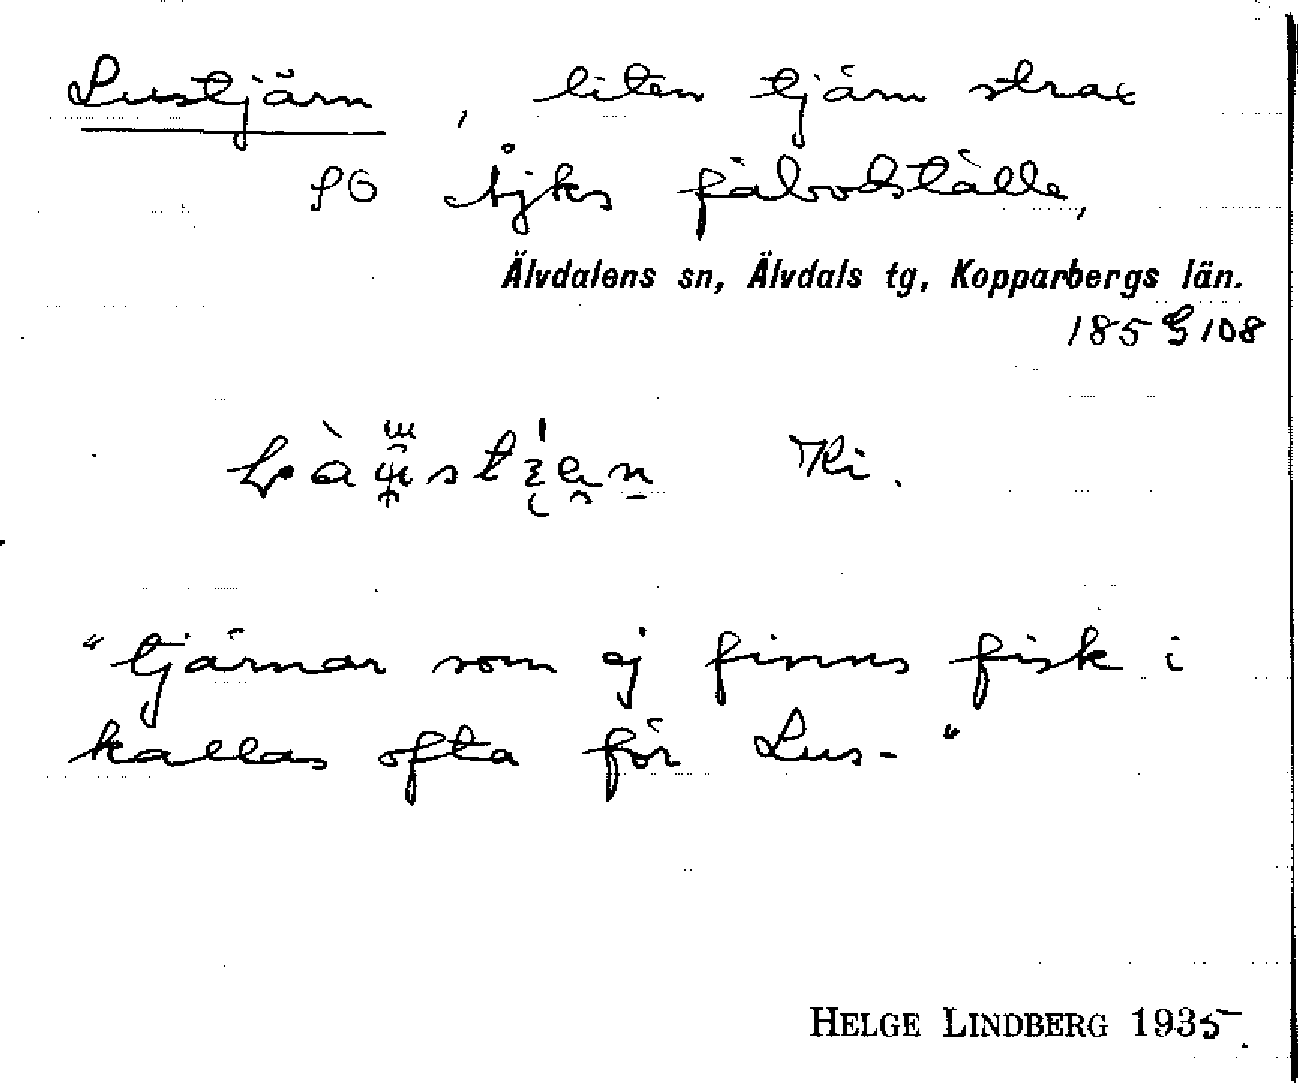 Lustjärn, liten tjärn strax
SO Åjks fäbodställe,
Älvdalens sn, Älvdals tg, Kopparbergs län.
185 G 108
Ki.
"tjärnar som ej finns fisk i
kallas ofta för Lus-"
HELGE LINDBERG 1935